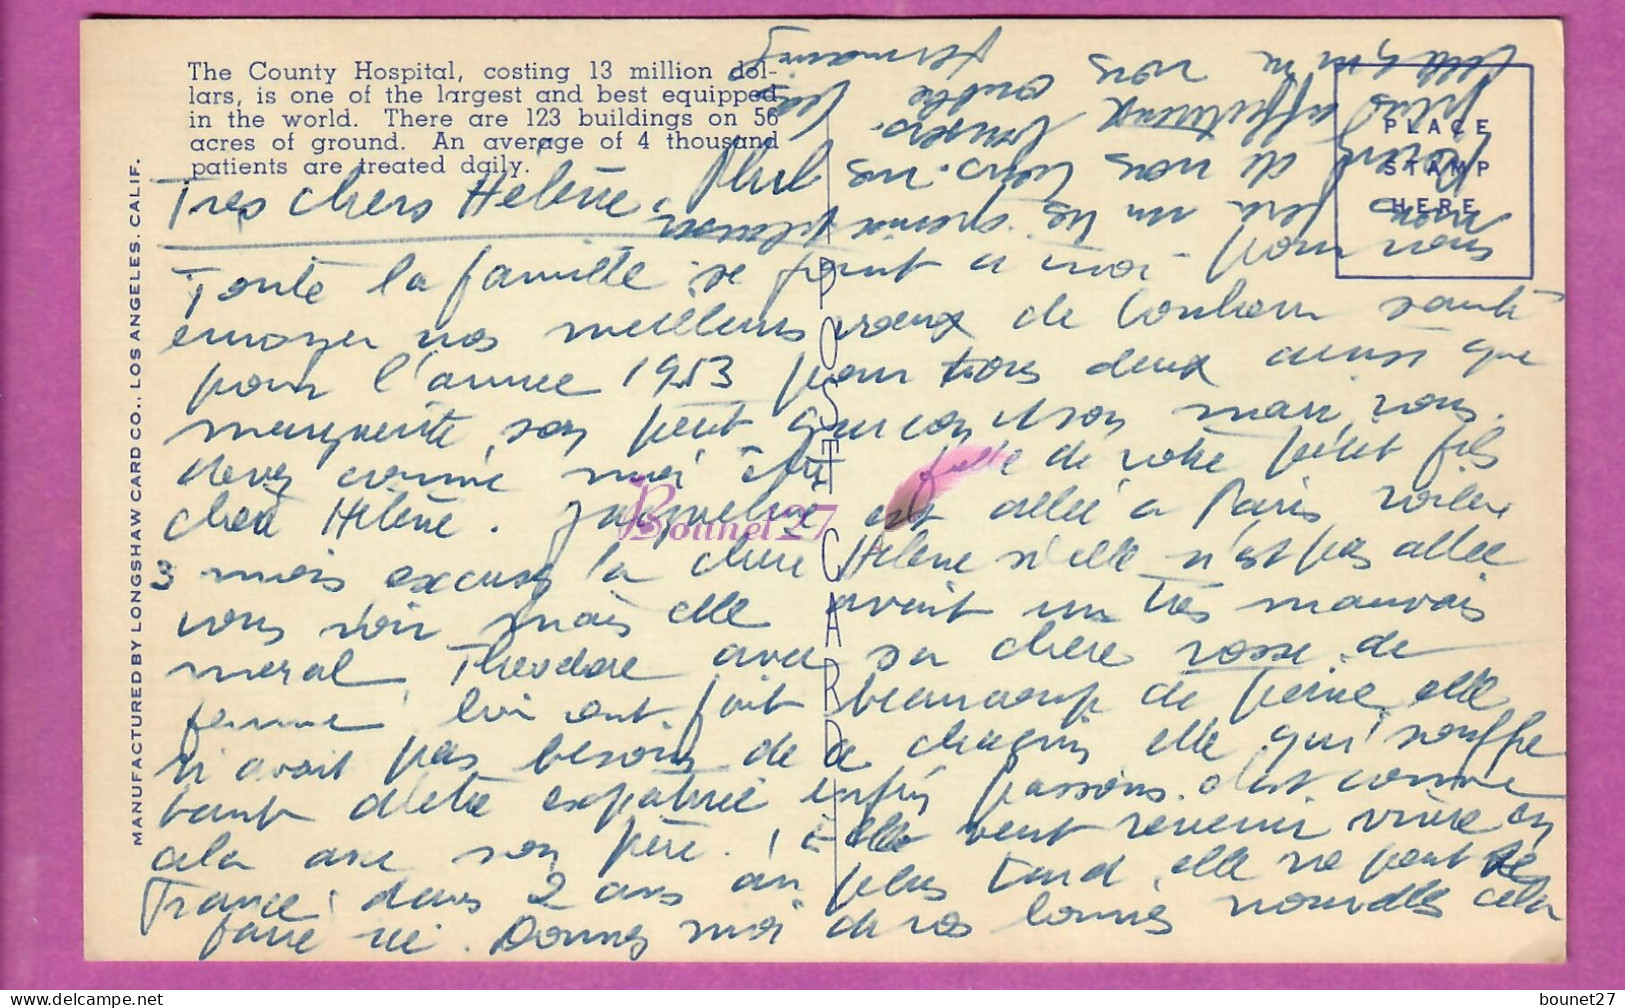 The County Hospital, costing 13 million dol-
lars, is one of the largest and best equipped
in the world. There are 123 buildings on 56
acres of ground. An average of 4 thousand
patients are treated daily.
PLACE
STAMP
HERE
MANUFACTURED BY LONGSHAW CARD CO., LOS ANGELES. CALIF.
POST CARD
Très chers Hélène,
Toute la famille se joint a moi pour vous
envoyer nos meilleurs voeux de bonheur santé
pour l'année 1953 pour tous deux ainsi que
marguerite son petit garcon et son mari, vous
devez comme moi être de votre petit fils
chère Hélène. Jacqueline est allée à Paris voila
3 mois excusez la chere Helene si elle n'est pas allee
vous voir mais elle avait un très mauvais
moral, Theodore avec sa chere rosse de
femme lui ont fait beaucoup de peine, elle
n'avait pas besoin de ce chagrin elle qui souffre
tant d'être expatrié enfin passons. c'est comme
cela avec son père. elle veut revenir vivre en
France, dans 2 ans au plus tard, elle ne peut se
faire ici. Donnez moi de vos bonnes nouvelles cela
nous fera un
de nous
plus affectueux baisers.
Bounet27
bounet27